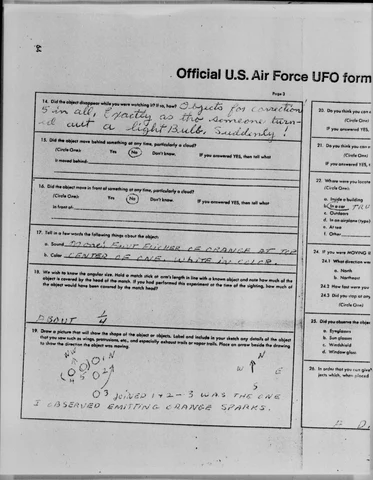 Official U.S. Air Force UFO form
Page 3
14. Did the object disappear while you were watching it? If so, how? Objects for correction
5 in all. Exactly as tho someone turn-
ed out a light Bulb. Suddenly!
15. Did the object move behind something at any time, particularly a cloud?
(Circle One): Yes No Don't know. If you answered YES, then tell what
it moved behind:
16. Did the object move in front of something at any time, particularly a cloud?
(Circle One): Yes No Don't know. If you answered YES, then tell what
in front of:
17. Tell in a few words the following things about the object:
a. Sound None. Faint flicker of orange at top
b. Color center of one, white in color.
18. We wish to know the angular size. Hold a match stick at arm's length in line with a known object and note how much of the
object is covered by the head of the match. If you had performed this experiment at the time of the sighting, how much of
the object would have been covered by the match head?
About 1/4
19. Draw a picture that will show the shape of the object or objects. Label and include in your sketch any details of the object
that you saw such as wings, protrusions, etc., and especially exhaust trails or vapor trails. Place an arrow beside the drawing
to show the direction the object was moving.
N
W E
S
3 joined 1 + 2 - 3 was the one
I observed emitting orange sparks.
20. Do you think you can
(Circle One):
If you answered YES,
21. Do you think you can
(Circle One):
If you answered YES, t
22. Where were you locate
(Circle One):
a. Inside a building
b. In a car
c. Outdoors
d. In an airplane (type)
e. At sea
f. Other
24. IF you were MOVING
24.1 What direction wer
a. North
b. Northeast
24.2 How fast were you
24.3 Did you stop at any
(Circle One)
25. Did you observe the objec
a. Eyeglasses
b. Sun glasses
c. Windshield
d. Window glass
26. In order that you can give
jects which, when placed